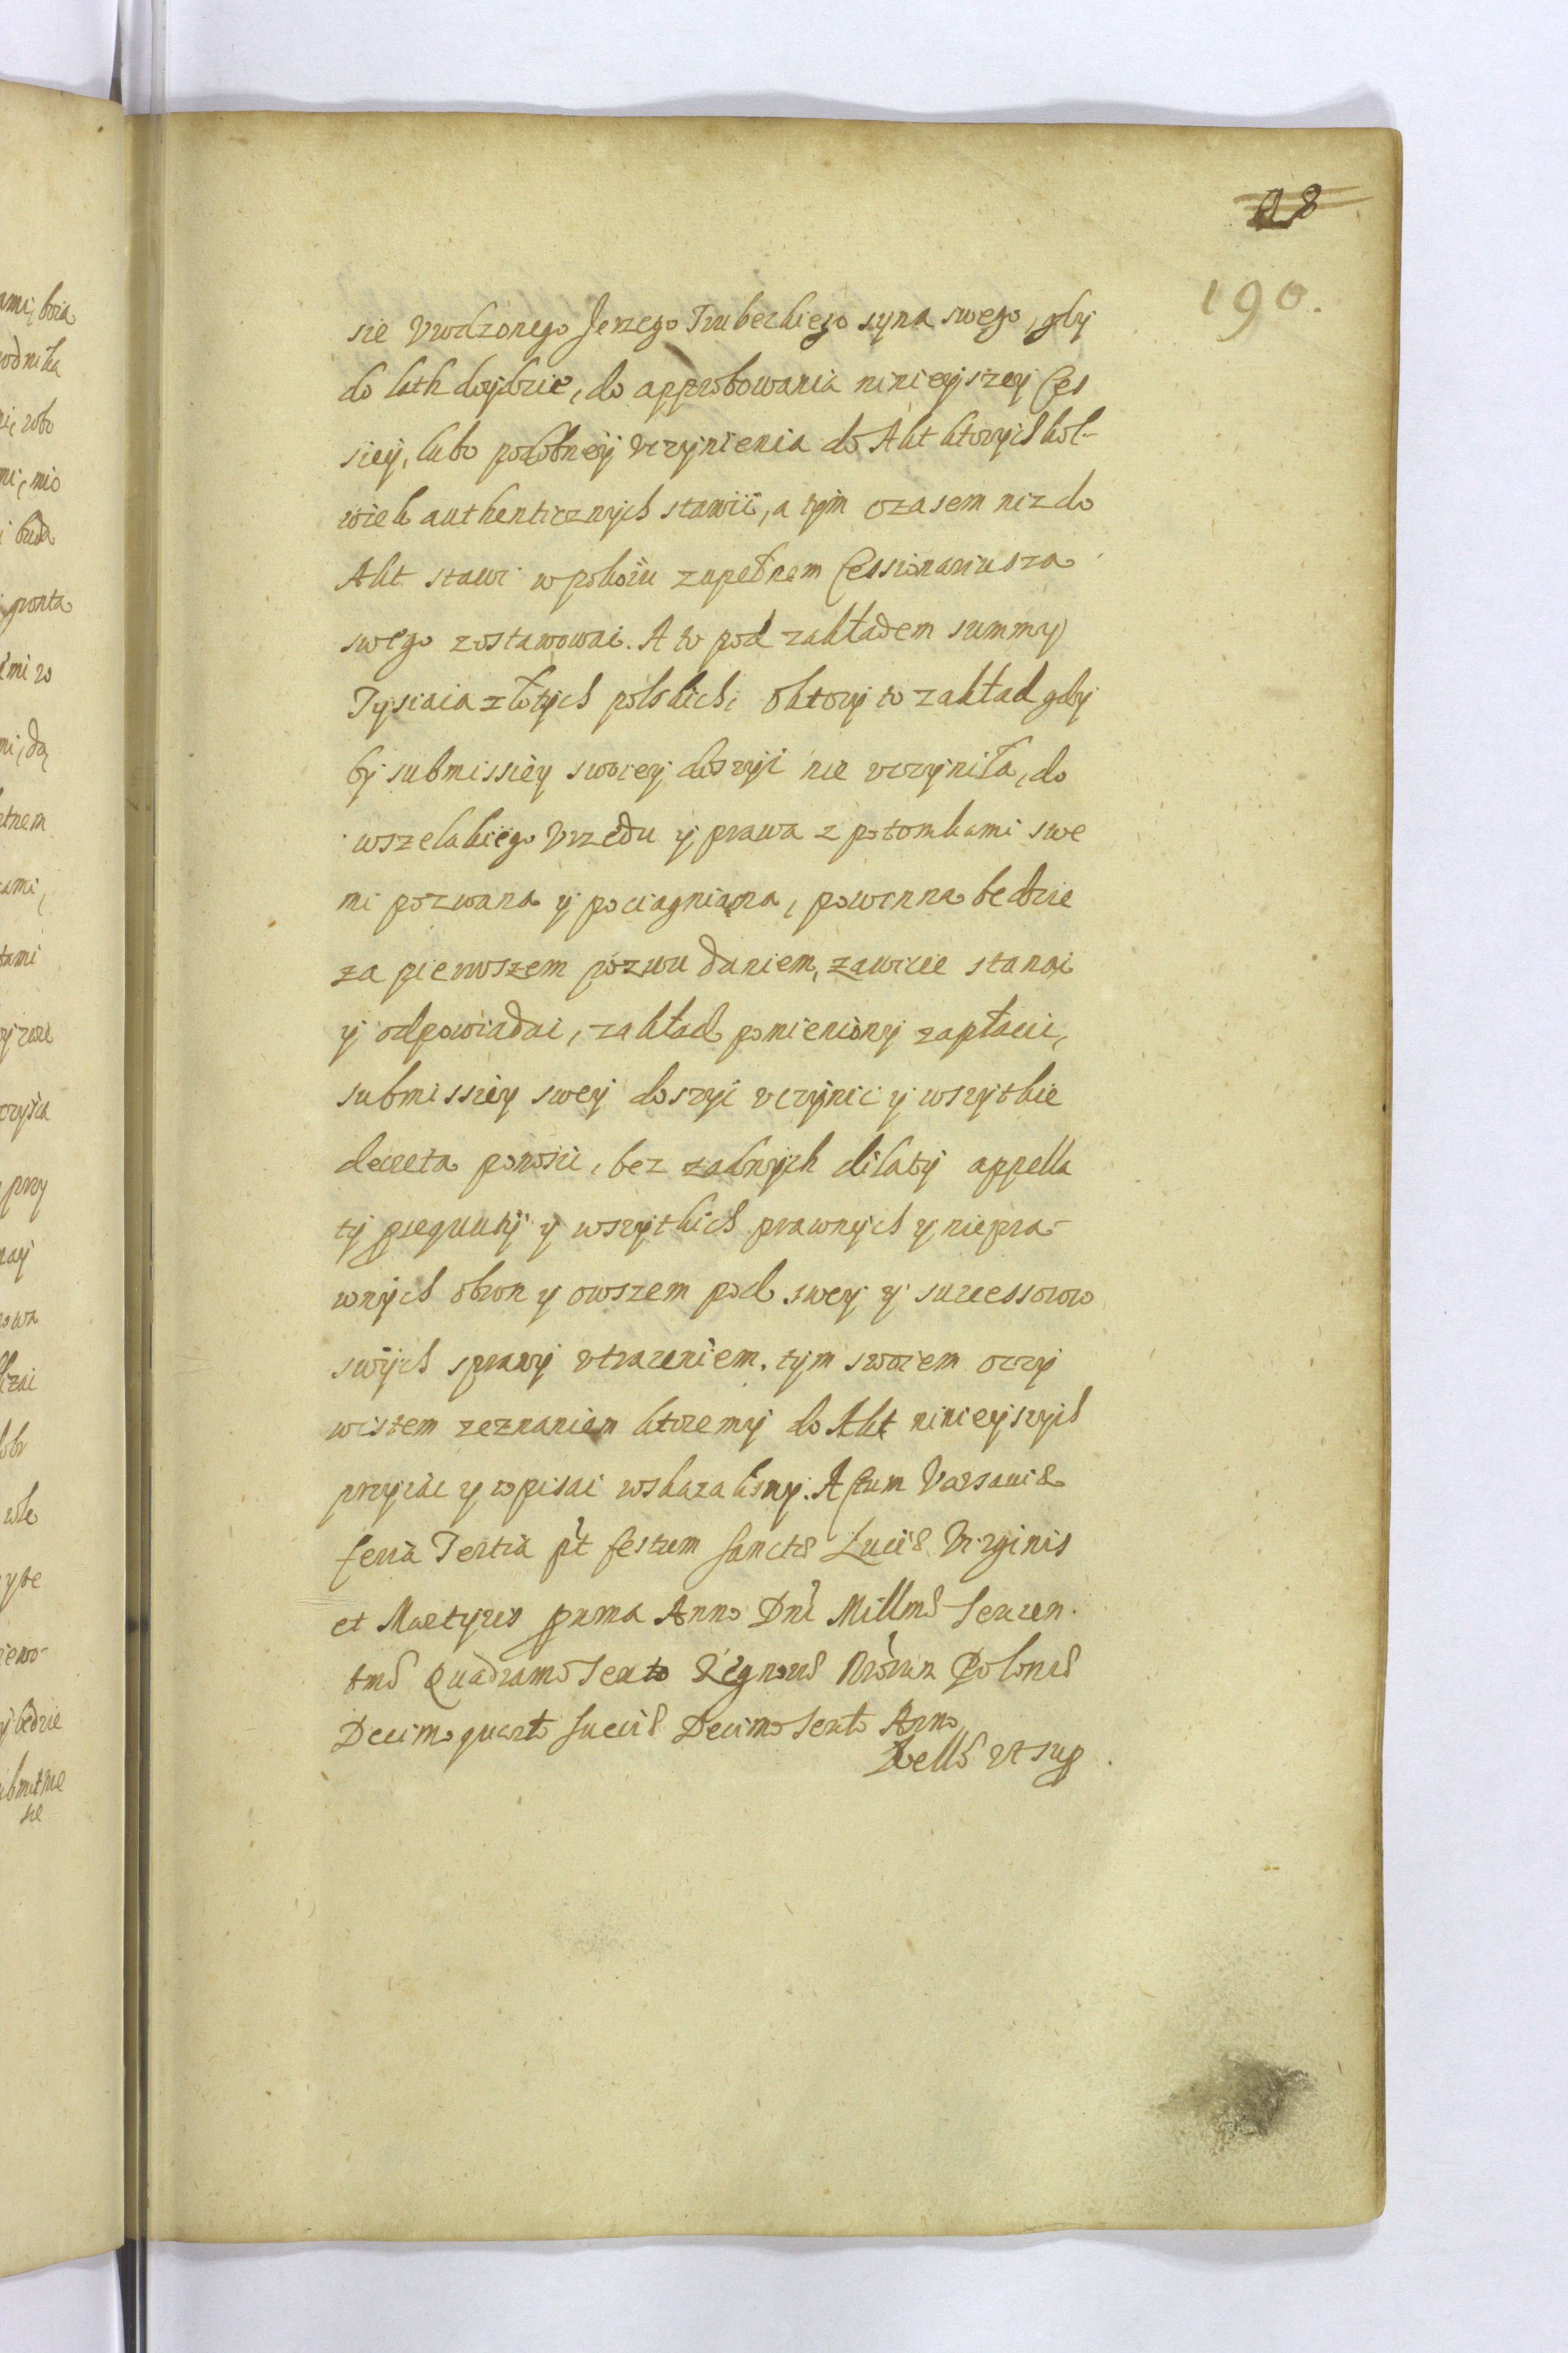 98
190.
sie Vrodzonego Jerzego Trubeckiego syna swego, gdy
do lath dojdzie, do approbowania ninieyszey Ces
siey, lubo podobney vczynienia do Akt ktorychkol-
wiek authenticznych stawić, a tym czasem niz do
Akt stawi w pokoiu zupełnem Cessionariusza
swego zostawowac. A to pod zakładem summy
Tysiaca złotych polskich, o ktory to zakład gdy
by submissiey swoiey dosyć nie vczyniła, do
wszelakiego Vrzedu y prawa z potomkami swe
mi pozwana y pociagniona, powinna bedzie
za pierwszem pozwu daniem, zawicie stanąc
y odpowiadac, zakład pomieniony zapłacic,
submissiey swey doszyć vczynic y wszytkie
decreta ponosic, bez zadnych dilatiy appella
tiy y wszytkich prawnych y niepra-
wnych obron y owszem pod swey y successorow
swych sprawy vtraceniem. tym swoiem oczy
wistem zeznaniem ktoremy do Akt ninieyszych
przyiac y wpisac wskazalismy. Actum Varsaviæ
feria Tertia pt festum Sanctæ Luciæ Virginis
et Martyris prima Anno Dni Millmo Sexcen
tmo Quadrmo Sexto Regnorũ Nrorum Poloniæ
Decimo quarto Sueciæ Decimo Sexto Anno
 vt sup
sie